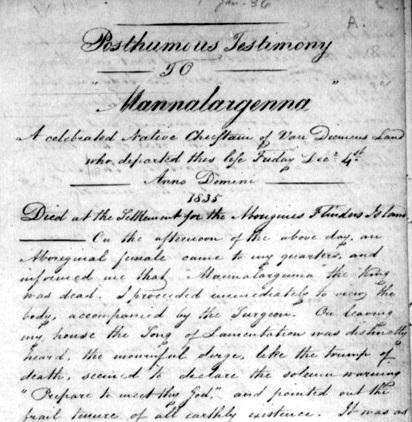 Jan. 36
A.
Posthumous Testimony
TO
"Mannalargenna"
A celebrated Native Chieftain of Van Diemens Land
who departed this life Friday Decr 4th
Anno Domini
1835
Died at the Settlement for the Aborigines Flinders Island
On the afternoon of the above day, an
Aboriginal female came to my quarters, and
informed me that Mannalargenna the King
was dead. I proceeded immediately to view the
body, accompanied by the Surgeon. On leaving
my house the Song of Lamentation was distinctly
heard. the mournful dirge, like the trump of
death, seemed to declare the solemn warning
"Prepare to meet thy God," and pointed out the
frail tenure of all earthly existence. It was as